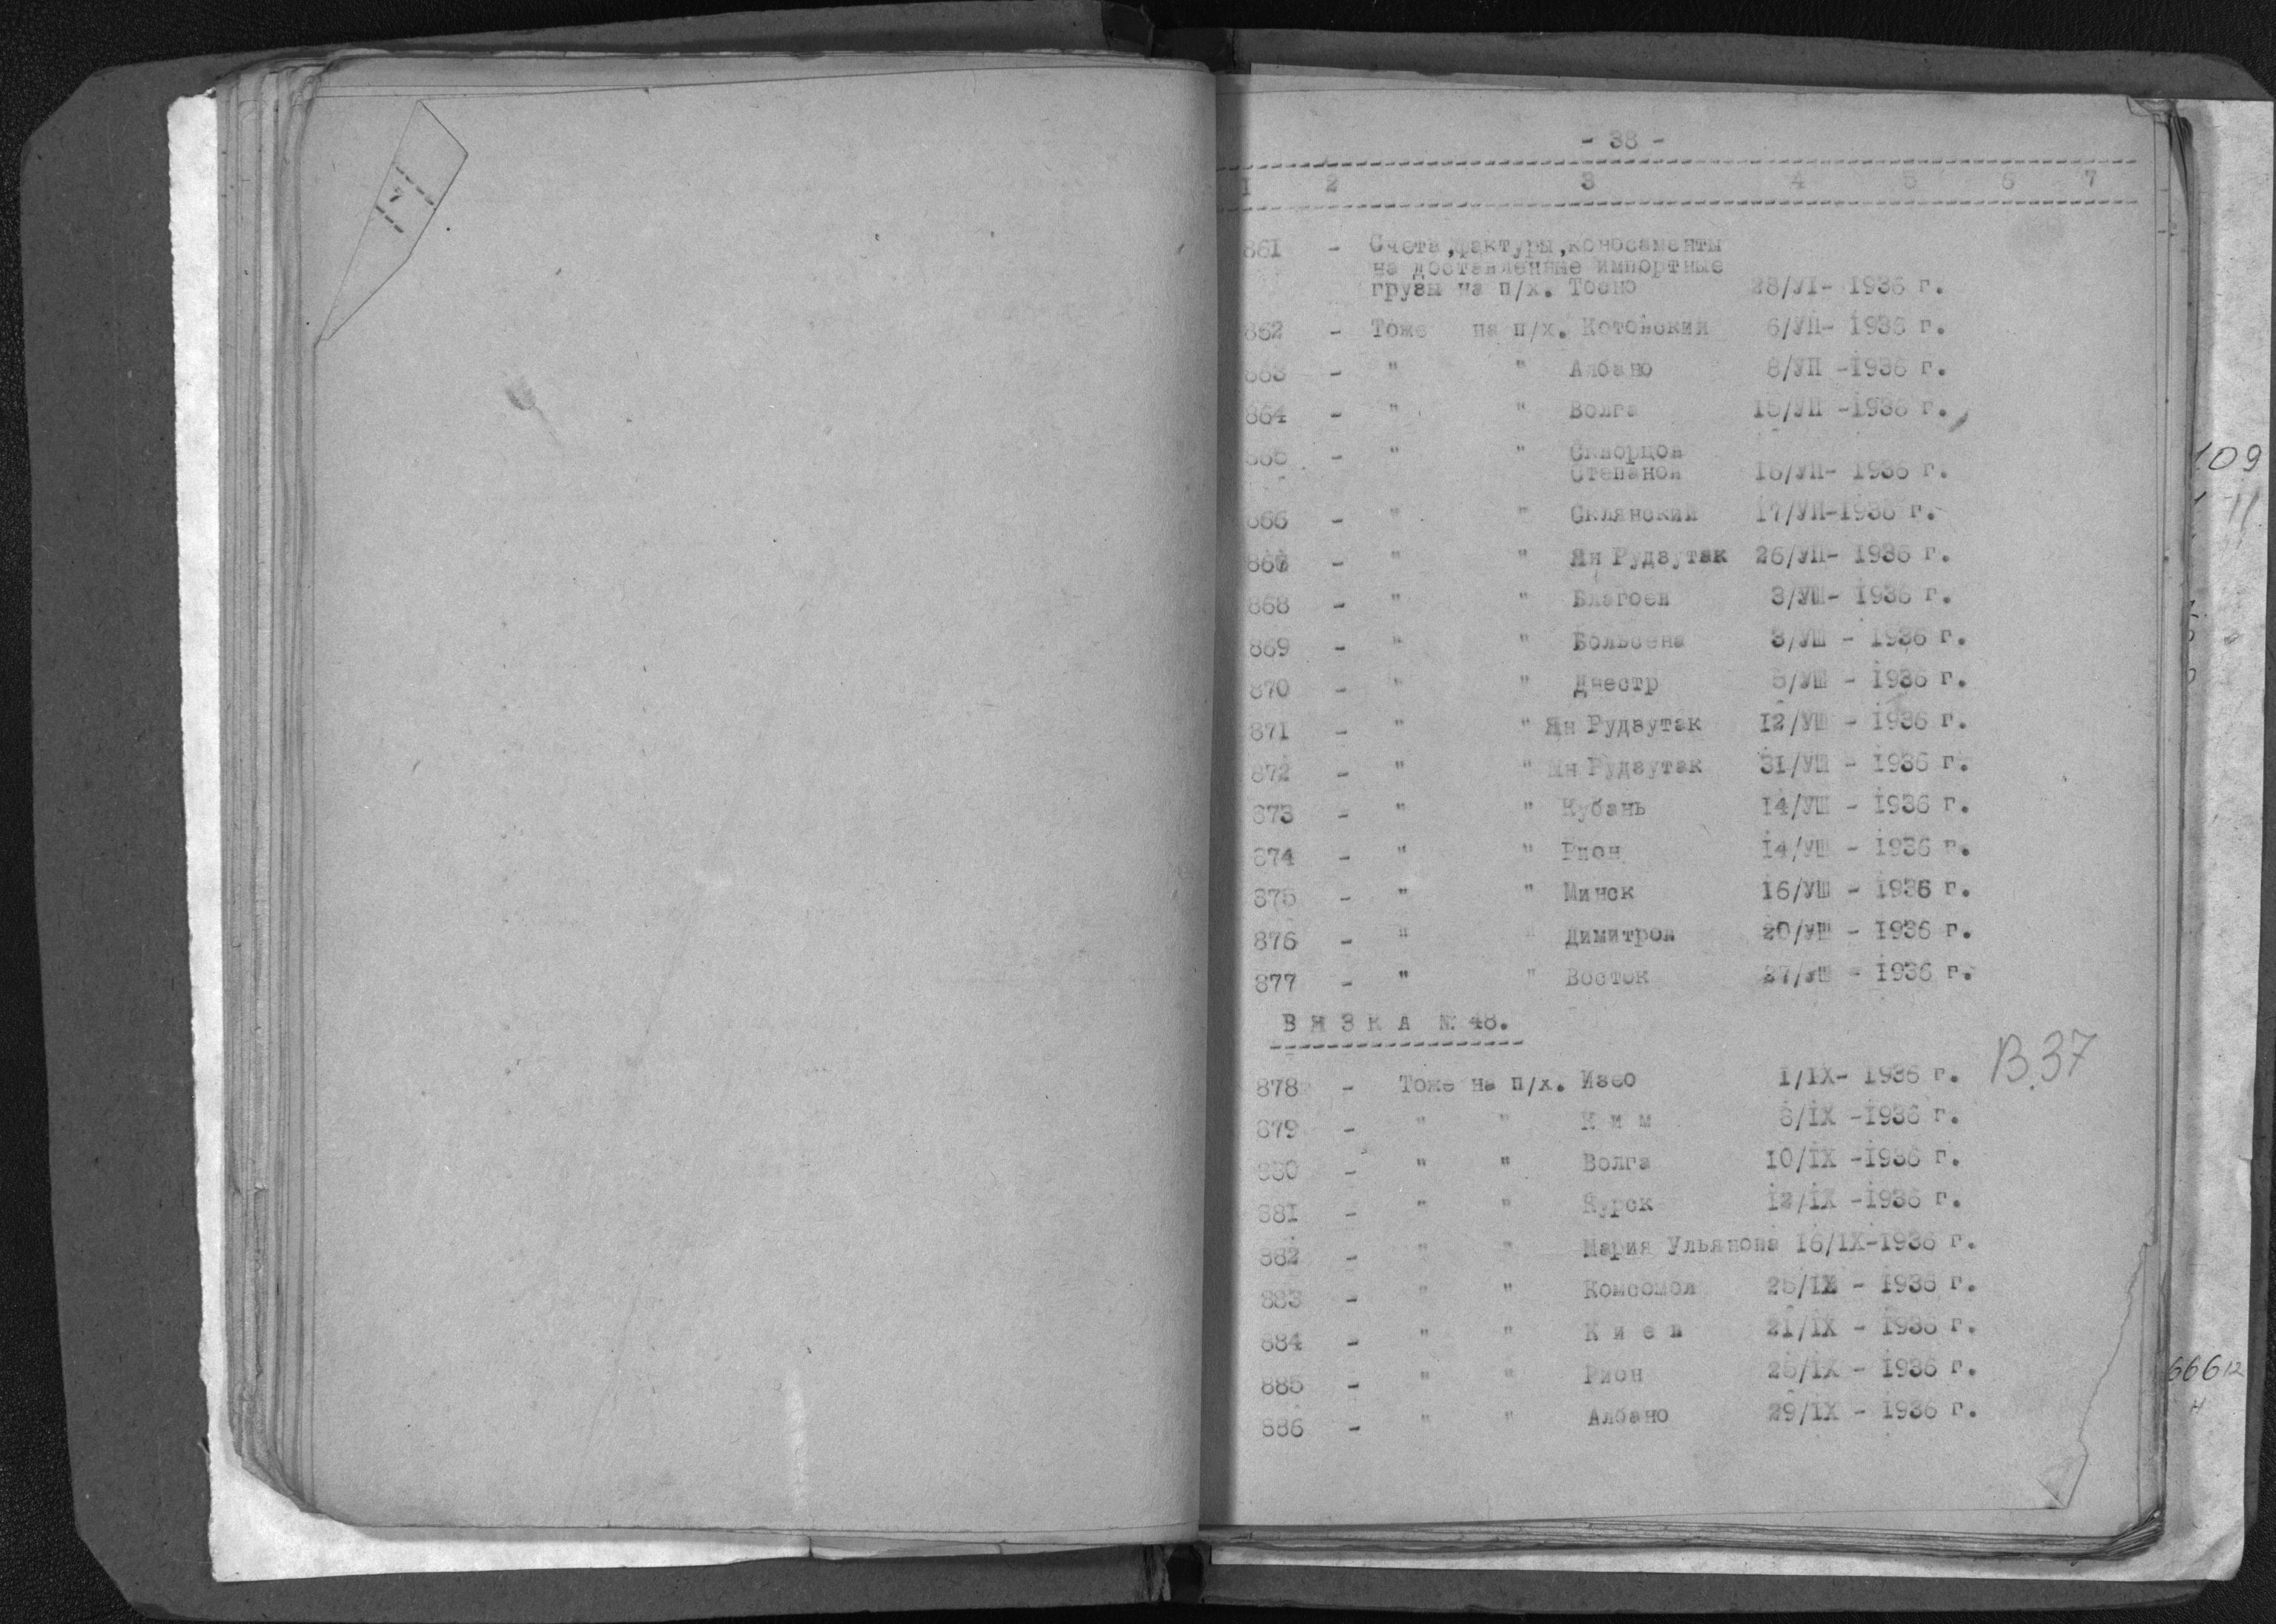 7
- 38 -
1 2 3 4 5 6 7
861 - Счета, фактуры, коносаменты
на доставленные импортные
грузы на п/х. Тосно 28/УI- 1936 г.
862 - Тоже на п/х. Котовский 6/УП- 1936 г.
863 - " " Албано 8/УП -1936 г.
864 - " " Волга 15/УП -1936 г.
865 - " " Скворцов
Степанов 16/УП- 1936 г.
866 - " " Склянский 17/УП-1936 г.
867 - " " Ян Рудзутак 26/УП- 1936 г.
868 - " " Благоев 3/УШ- 1936 г.
869 - " " Больсена 3/УШ - 1936 г.
870 - " " Днестр 5/УШ - 1936 г.
871 - " " Ян Рудзутак 12/УШ - 1936 г.
872 - " " Ян Рудзутак 31/УШ - 1936 г.
873 - " " Кубань 14/УШ - 1936 г.
874 - " " Рион 14/УШ - 1936 г.
875 - " " Минск 16/УШ - 1936 г.
876 - " " Димитров 20/УШ - 1936 г.
877 - " " Восток 27/УШ - 1936 г.
В Я З К А № 48.
В.37
878 - Тоже на п/х. Изео 1/IX- 1936 г.
879 - " " К и м 6/IX -1936 г.
880 - " " Волга 10/IX -1936 г.
881 - " " Курск 12/IX -1936 г.
882 - " " Мария Ульянова 16/IX-1936 г.
883 - " " Комсомол 25/IX - 1936 г.
884 - " " К и е в 21/IX - 1936 г.
885 - " " Рион 25/IX - 1936 г.
886 - " " Албано 29/IX - 1936 г.
109
11
66612